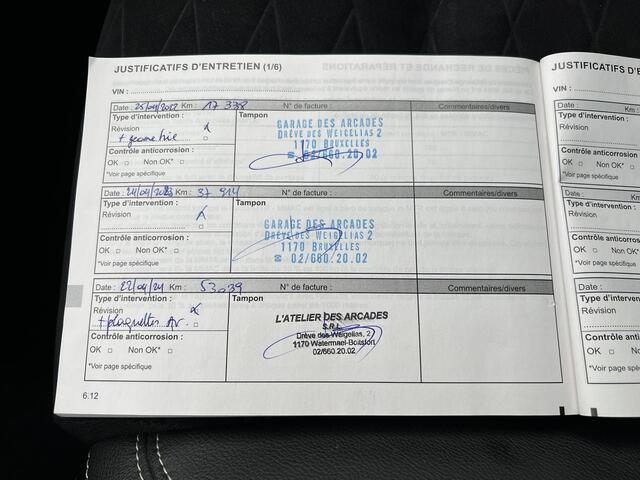 JUSTIFICATIFS D'ENTRETIEN (1/6)
VIN :
Date : 25/04/2022 Km : 17 338 N° de facture : Commentaires/divers
Type d'intervention : Tampon
Révision x
+ geometrie □
Contrôle anticorrosion :
OK □ Non OK* □
*Voir page spécifique
GARAGE DES ARCADES
DRÈVE DES WEIGELIAS 2
1170 BRUXELLES
☎ 02/660.20.02
Date : 24/04/2023 Km : 37 914 N° de facture : Commentaires/divers
Type d'intervention : Tampon
Révision x
□
Contrôle anticorrosion :
OK □ Non OK* □
*Voir page spécifique
GARAGE DES ARCADES
DRÈVE DES WEIGELIAS 2
1170 BRUXELLES
☎ 02/660.20.02
Date : 22/04/24 Km : 53039 N° de facture : Commentaires/divers
Type d'intervention : Tampon
Révision x
+ plaquettes Ar. □
Contrôle anticorrosion :
OK □ Non OK* □
*Voir page spécifique
L'ATELIER DES ARCADES
S.R.L.
Drève des Weigelias, 2
1170 Watermael-Boitsfort
02/660.20.02
6.12
JUSTIFICATIFS D'E
VIN :
Date : K
Type d'intervention :
Révision
Contrôle anticorrosion
OK □ Non OK*
*Voir page spécifique
Date : K
Type d'intervention :
Révision
Contrôle anticorrosio
OK □ Non OK*
*Voir page spécifique
Date :
Type d'intervention :
Révision
Contrôle anticorro
OK □ Non OK
*Voir page spécifiqu